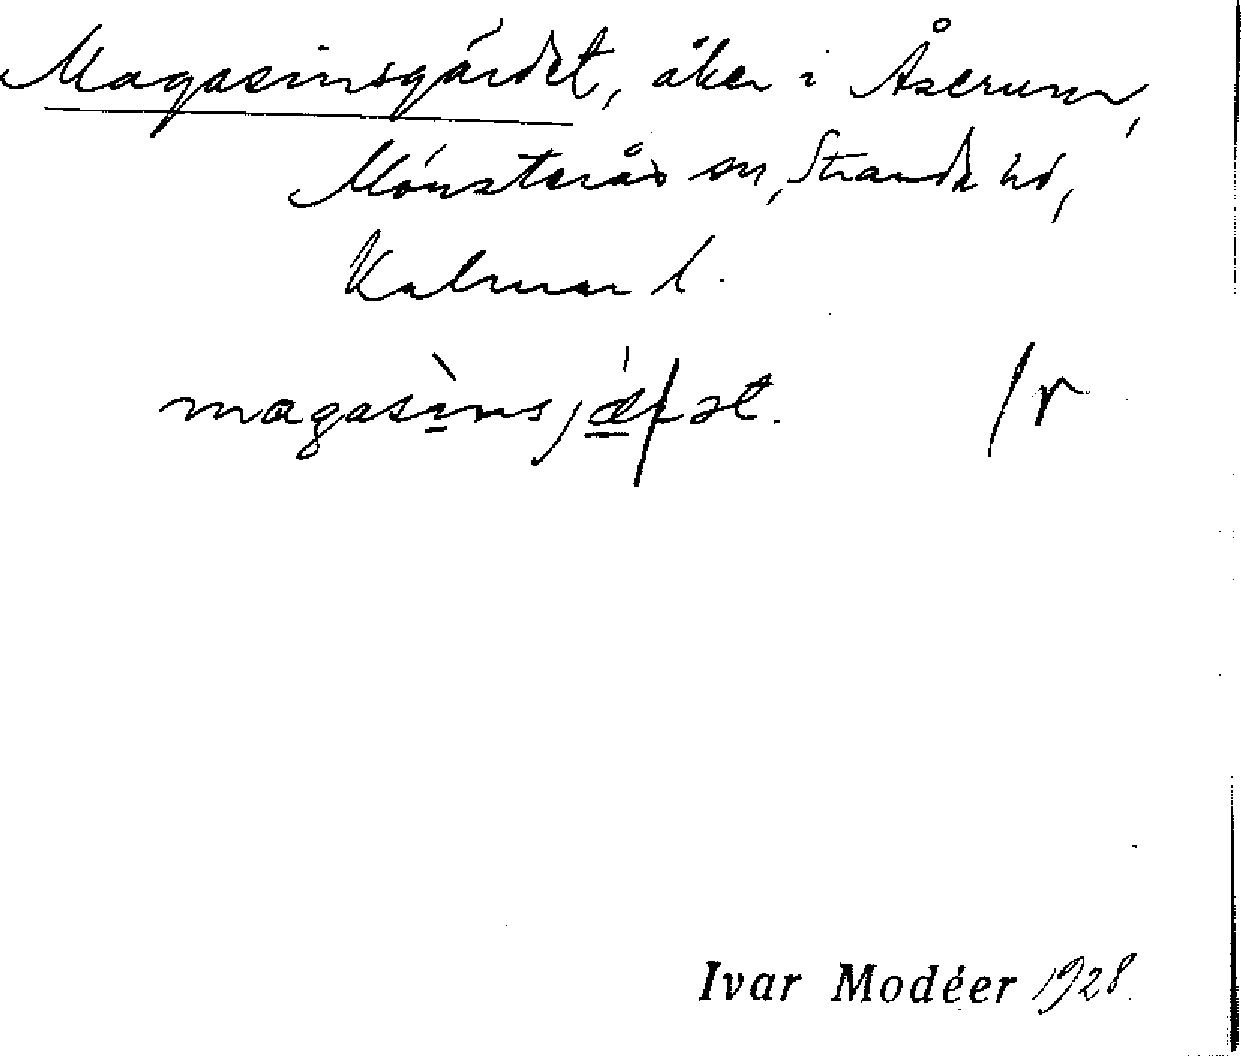 Magasinsgärdet, åker i Åserum,
Mönsterås sn, Stranda hd,
Kalmar l.
magasìnsjæ̣rət. /r
Ivar Modéer 1928.